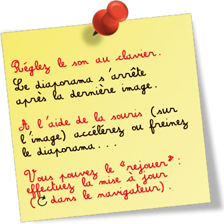 Réglez le son au clavier.
Le diaporama s'arrête
après la dernière image.
A l'aide de la souris (sur
l'image) accélérez ou freinez
le diaporama...
Vous pouvez le "rejouer" :
effectuez la mise à jour
(↻ dans le navigateur).